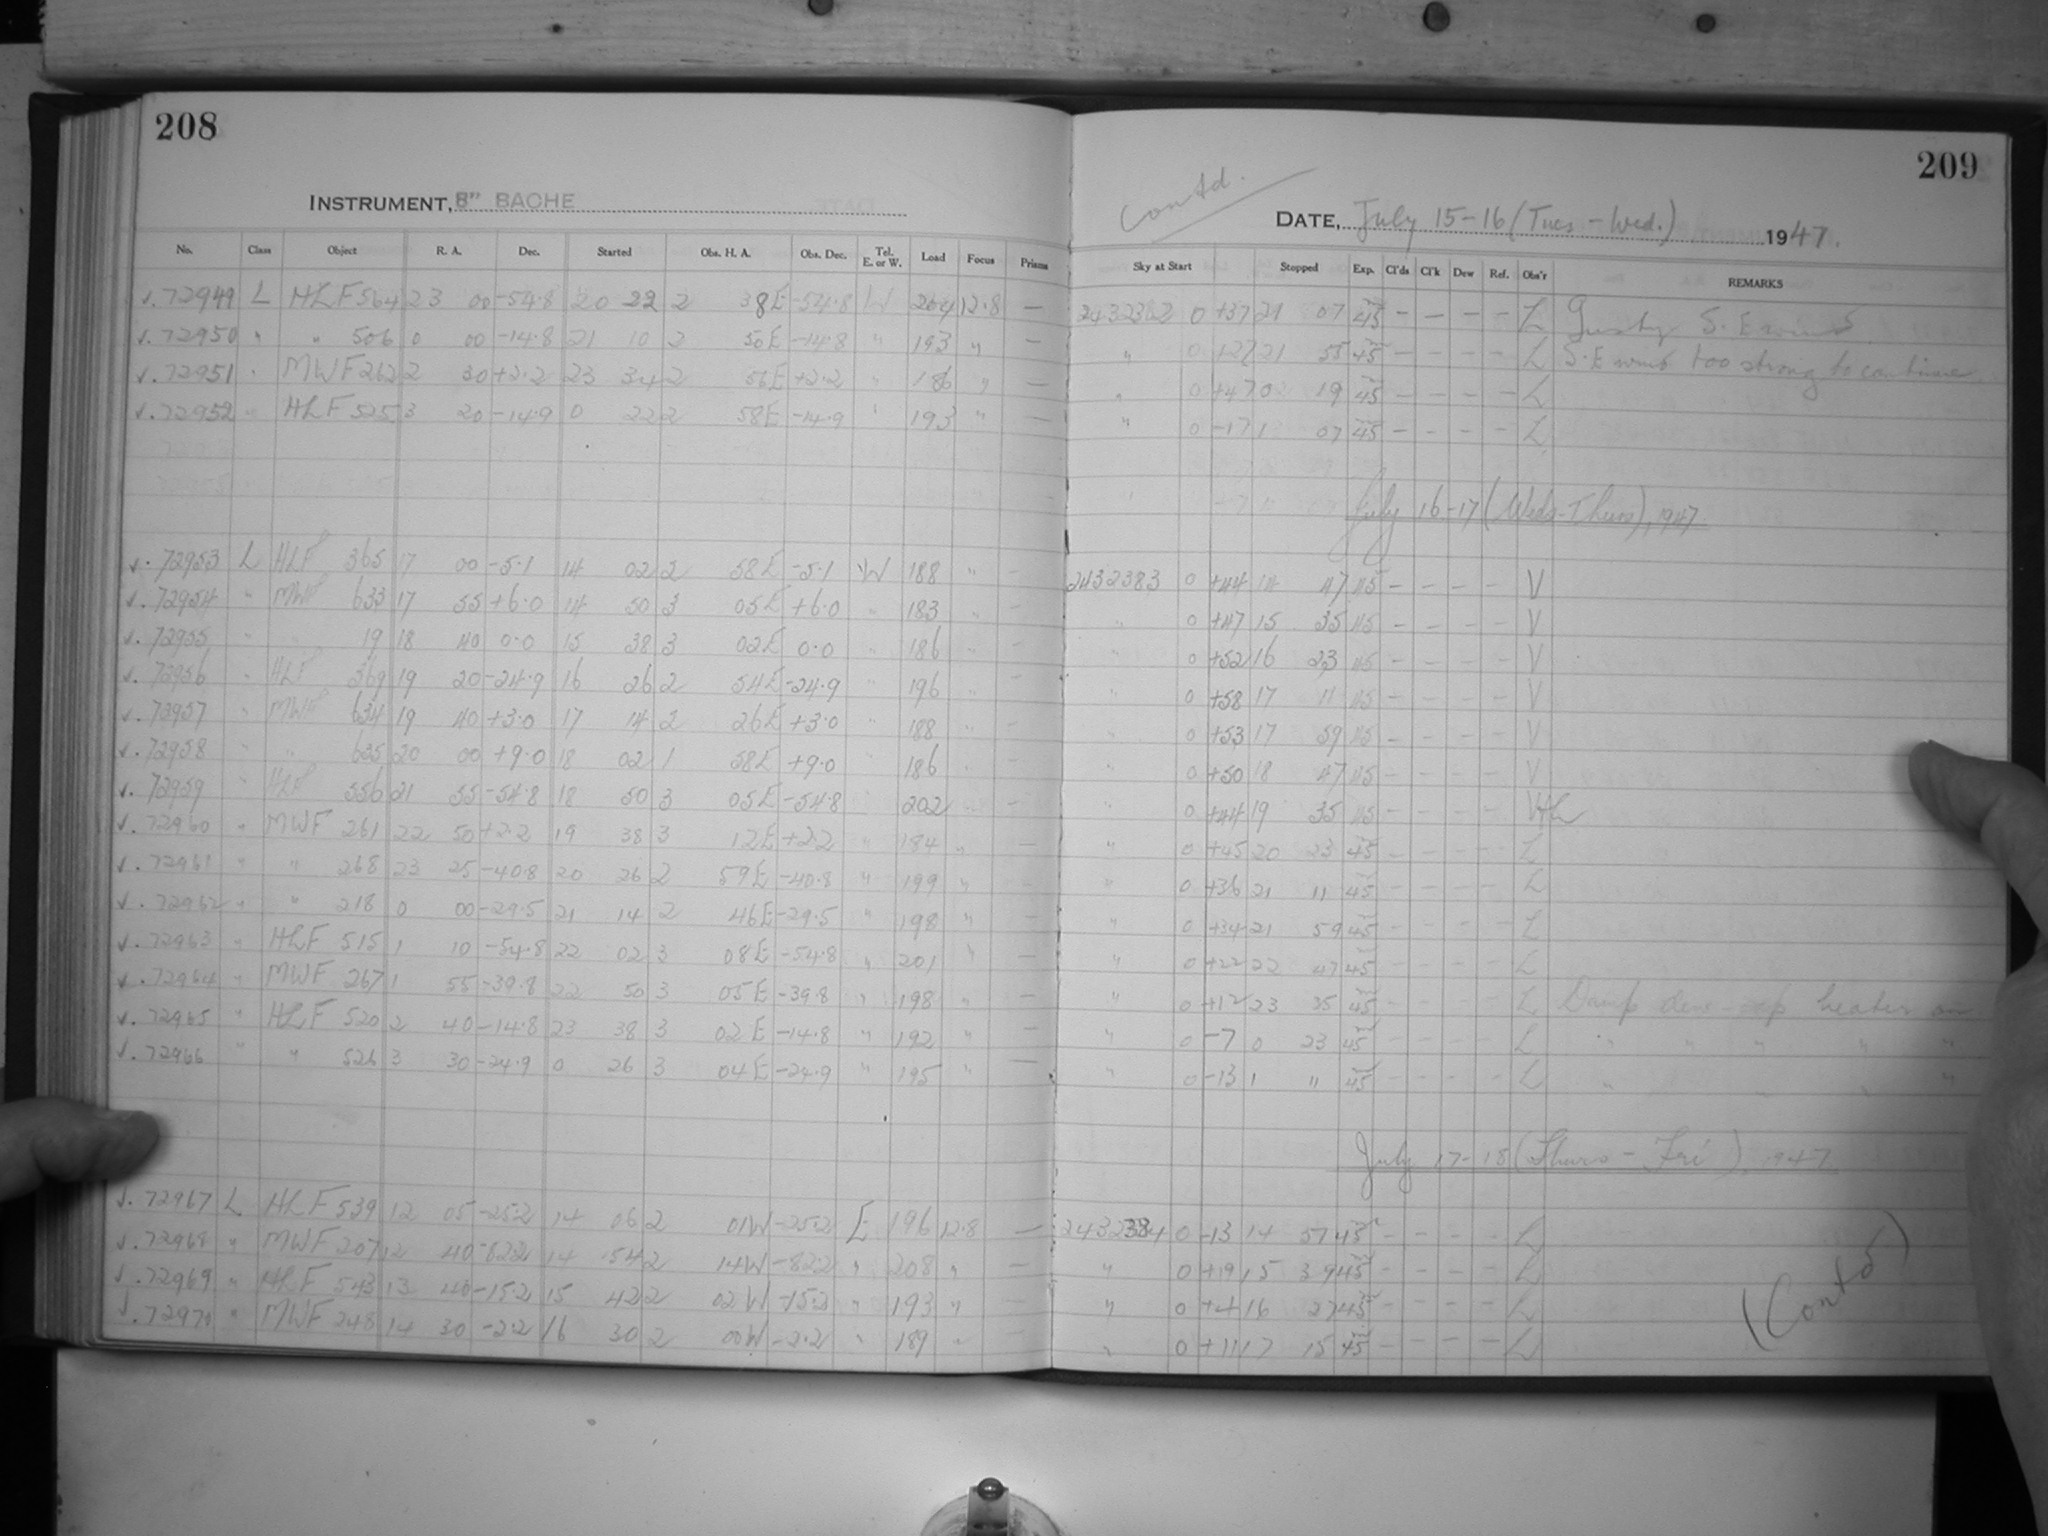 208
INSTRUMENT, 8" BACHE
No. Class Object R. A. Dec. Started Obs. H. A. Obs. Dec. Tel. E. or W. Load Focus Prisms
v. 72949 L HLF 564 23 00 -54.8 20 22 2 38E -54.8 W 204 12.8 —
v. 72950 " " 506 0 00 -14.8 21 10 2 50E -14.8 " 193 " —
v. 72951 " MWF 262 2 30 +2.2 23 34 2 56E +2.2 " 186 " —
v. 72952 " HLF 525 3 20 -14.9 0 22 2 58E -14.9 " 193 " —
v. 72953 L HLF 365 17 00 -5.1 14 02 2 58E -5.1 W 188 " —
v. 72954 " MWF 633 17 55 +6.0 14 50 3 05E +6.0 " 183 " —
v. 72955 " " 19 18 40 0.0 15 38 3 02E 0.0 " 186 " —
v. 72956 " HLF 369 19 20 -24.9 16 26 2 54E -24.9 " 196 " —
v. 72957 " MWF 634 19 40 +3.0 17 14 2 26E +3.0 " 188 " —
v. 72958 " " 635 20 00 +9.0 18 02 1 58E +9.0 " 186 " —
v. 72959 " HLF 556 21 55 -54.8 18 50 3 05E -54.8 202 " —
v. 72960 " MWF 261 22 50 +2.2 19 38 3 12E +2.2 " 184 " —
v. 72961 " " 268 23 25 -40.8 20 26 2 59E -40.8 " 199 " —
v. 72962 " " 218 0 00 -29.5 21 14 2 46E -29.5 " 198 " —
v. 72963 " HLF 515 1 10 -54.8 22 02 3 08E -54.8 " 201 " —
v. 72964 " MWF 267 1 55 -39.8 22 50 3 05E -39.8 " 198 " —
v. 72965 " HLF 520 2 40 -14.8 23 38 3 02E -14.8 " 192 " —
v. 72966 " " 526 3 30 -24.9 0 26 3 04E -24.9 " 195 " —
v. 72967 L HLF 539 12 05 -25.2 14 06 2 01W -25.2 E 196 12.8 —
v. 72968 " MWF 207 12 40 -82.2 14 54 2 14W -82.2 " 208 " —
v. 72969 " HLF 543 13 40 -15.2 15 42 2 02W -15.2 " 193 " —
v. 72970 " MWF 248 14 30 -2.2 16 30 2 00W -2.2 " 189 " —
209
Contd.
DATE, July 15-16 (Tues - Wed.) 1947.
Sky at Start Stopped Exp. Cl'ds Cl'k Dew Ref. Obs'r REMARKS
2432382 0 +37 21 07 45 — — — — L Gusty S.E wind
" 0 +27 21 55 45 — — — — L S.E wind too strong to continue
" 0 +47 0 19 45 — — — — L
" 0 -17 1 07 45 — — — — L
July 16-17 (Weds-Thurs), 1947.
2432383 0 +44 14 47 45 — — — — V
" 0 +47 15 35 45 — — — — V
" 0 +52 16 23 45 — — — — V
" 0 +58 17 11 45 — — — — V
" 0 +53 17 59 45 — — — — V
" 0 +50 18 47 45 — — — — V
" 0 +44 19 35 45 — — — —
" 0 +45 20 23 45 — — — — L
" 0 +36 21 11 45 — — — — L
" 0 +34 21 59 45 — — — — L
" 0 +22 22 47 45 — — — — L
" 0 +12 23 35 45 — — — — L Damp dew-cap heater on
" 0 -7 0 23 45 — — — — L " " " " "
" 0 -13 1 11 45 — — — — L " " "
July 17-18 (Thurs - Fri), 1947
2432384 0 -13 14 51 45 — — — — L
" 0 +19 15 39 45 — — — — L
" 0 +4 16 27 45 — — — — L
" 0 +11 17 15 45 — — — — L
(Contd)